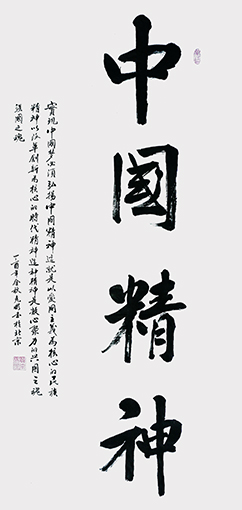 中國精神
實現中國梦必須弘揚中國精神這就是以愛國主義為核心的民族
精神以改革創新為核心的時代精神這种精神是凝心聚力的興國之魂
强國之魂
丁酉年金秋 書於北京